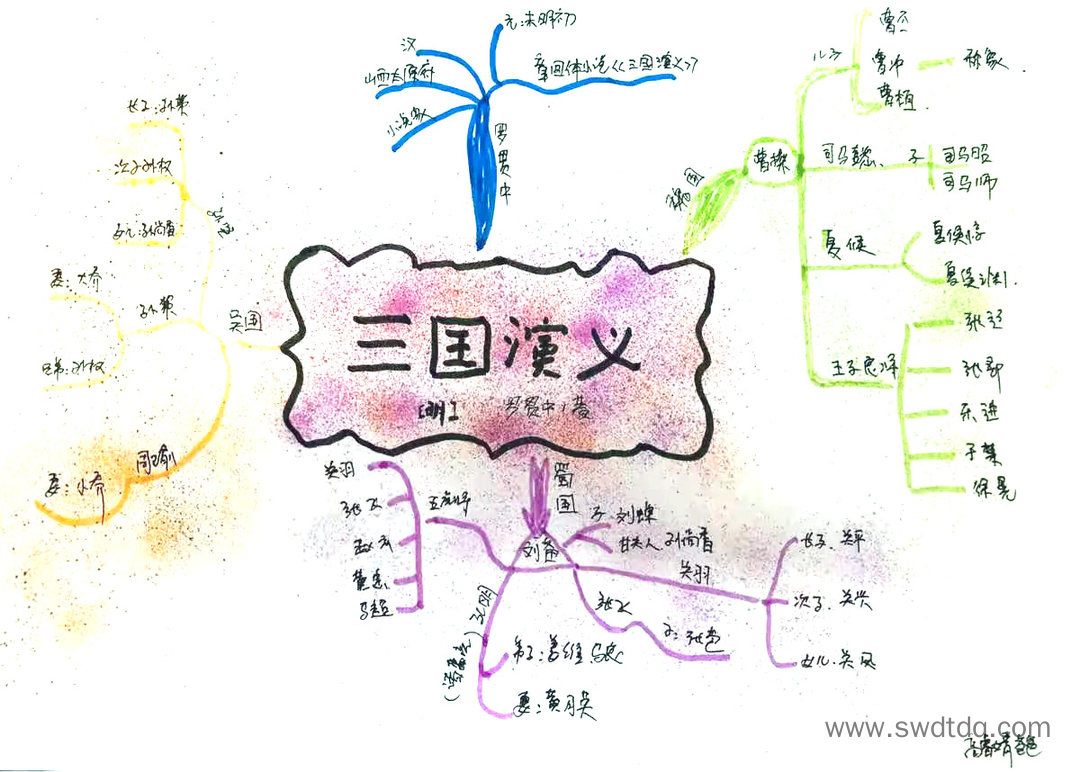 三国演义
[明] 罗贯中/著
罗贯中
元末明初
汉
山西太原府
小说家
章回体小说《三国演义》
魏国
曹操
儿子
曹丕
曹冲
称象
曹植
司马懿
子
司马昭
司马师
夏候
夏侯惇
夏侯渊
五子良将
张辽
张郃
乐进
于禁
徐晃
蜀国
刘备
子:刘禅
甘夫人 孙尚香
关羽
长子:关平
次子:关兴
女儿:关凤
张飞
子:张苞
孔明
(诸葛亮)
弟子:姜维 马谡
妻:黄月英
五虎将
关羽
张飞
赵云
黄忠
马超
吴国
孙坚
长子:孙策
次子孙权
女儿:孙尚香
孙策
妻:大乔
兄弟:孙权
周瑜
妻:小乔
www.swdtdq.com